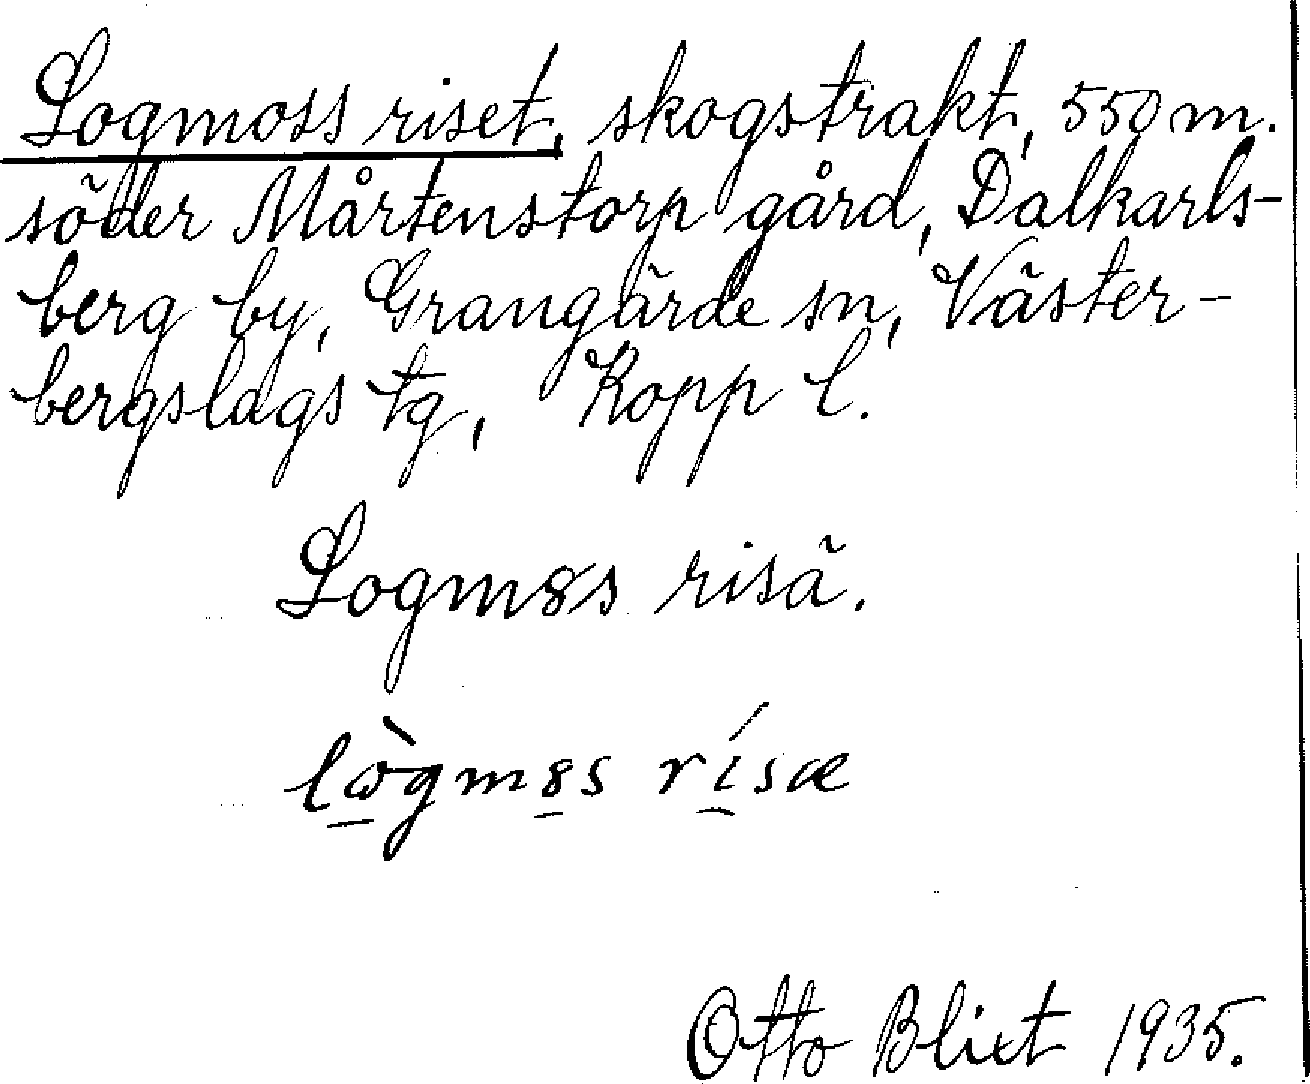 Logmoss riset, skogstrakt, 550 m.
söder Mårtenstorp gård, Dalkarls-
berg by, Grangärde sn, Väster-
bergslags tg, Kopp l.
Logm8s risä.
lὼgm8s rísæ
Otto Blixt 1935.